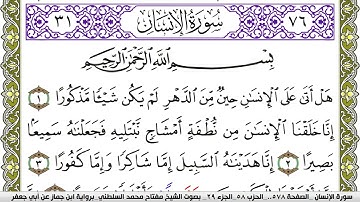 ٣١ سُورَةُ الإِنسَانِ ٧٦
بِسْمِ اللَّهِ الرَّحْمَٰنِ الرَّحِيمِ
هَلْ أَتَىٰ عَلَى الْإِنسَانِ حِينٌ مِّنَ الدَّهْرِ لَمْ يَكُن شَيْئًا مَّذْكُورًا ١
إِنَّا خَلَقْنَا الْإِنسَانَ مِن نُّطْفَةٍ أَمْشَاجٍ نَّبْتَلِيهِ فَجَعَلْنَاهُ سَمِيعًا
بَصِيرًا ٢ إِنَّا هَدَيْنَاهُ السَّبِيلَ إِمَّا شَاكِرًا وَإِمَّا كَفُورًا ٣
سورة الإنسان الصفحة ٥٧٨.. الحزب ٥٨ .الجزء ٢٩ بصوت الشيخ مفتاح محمد السلطني .برواية ابن جماز عن أبي جعفر